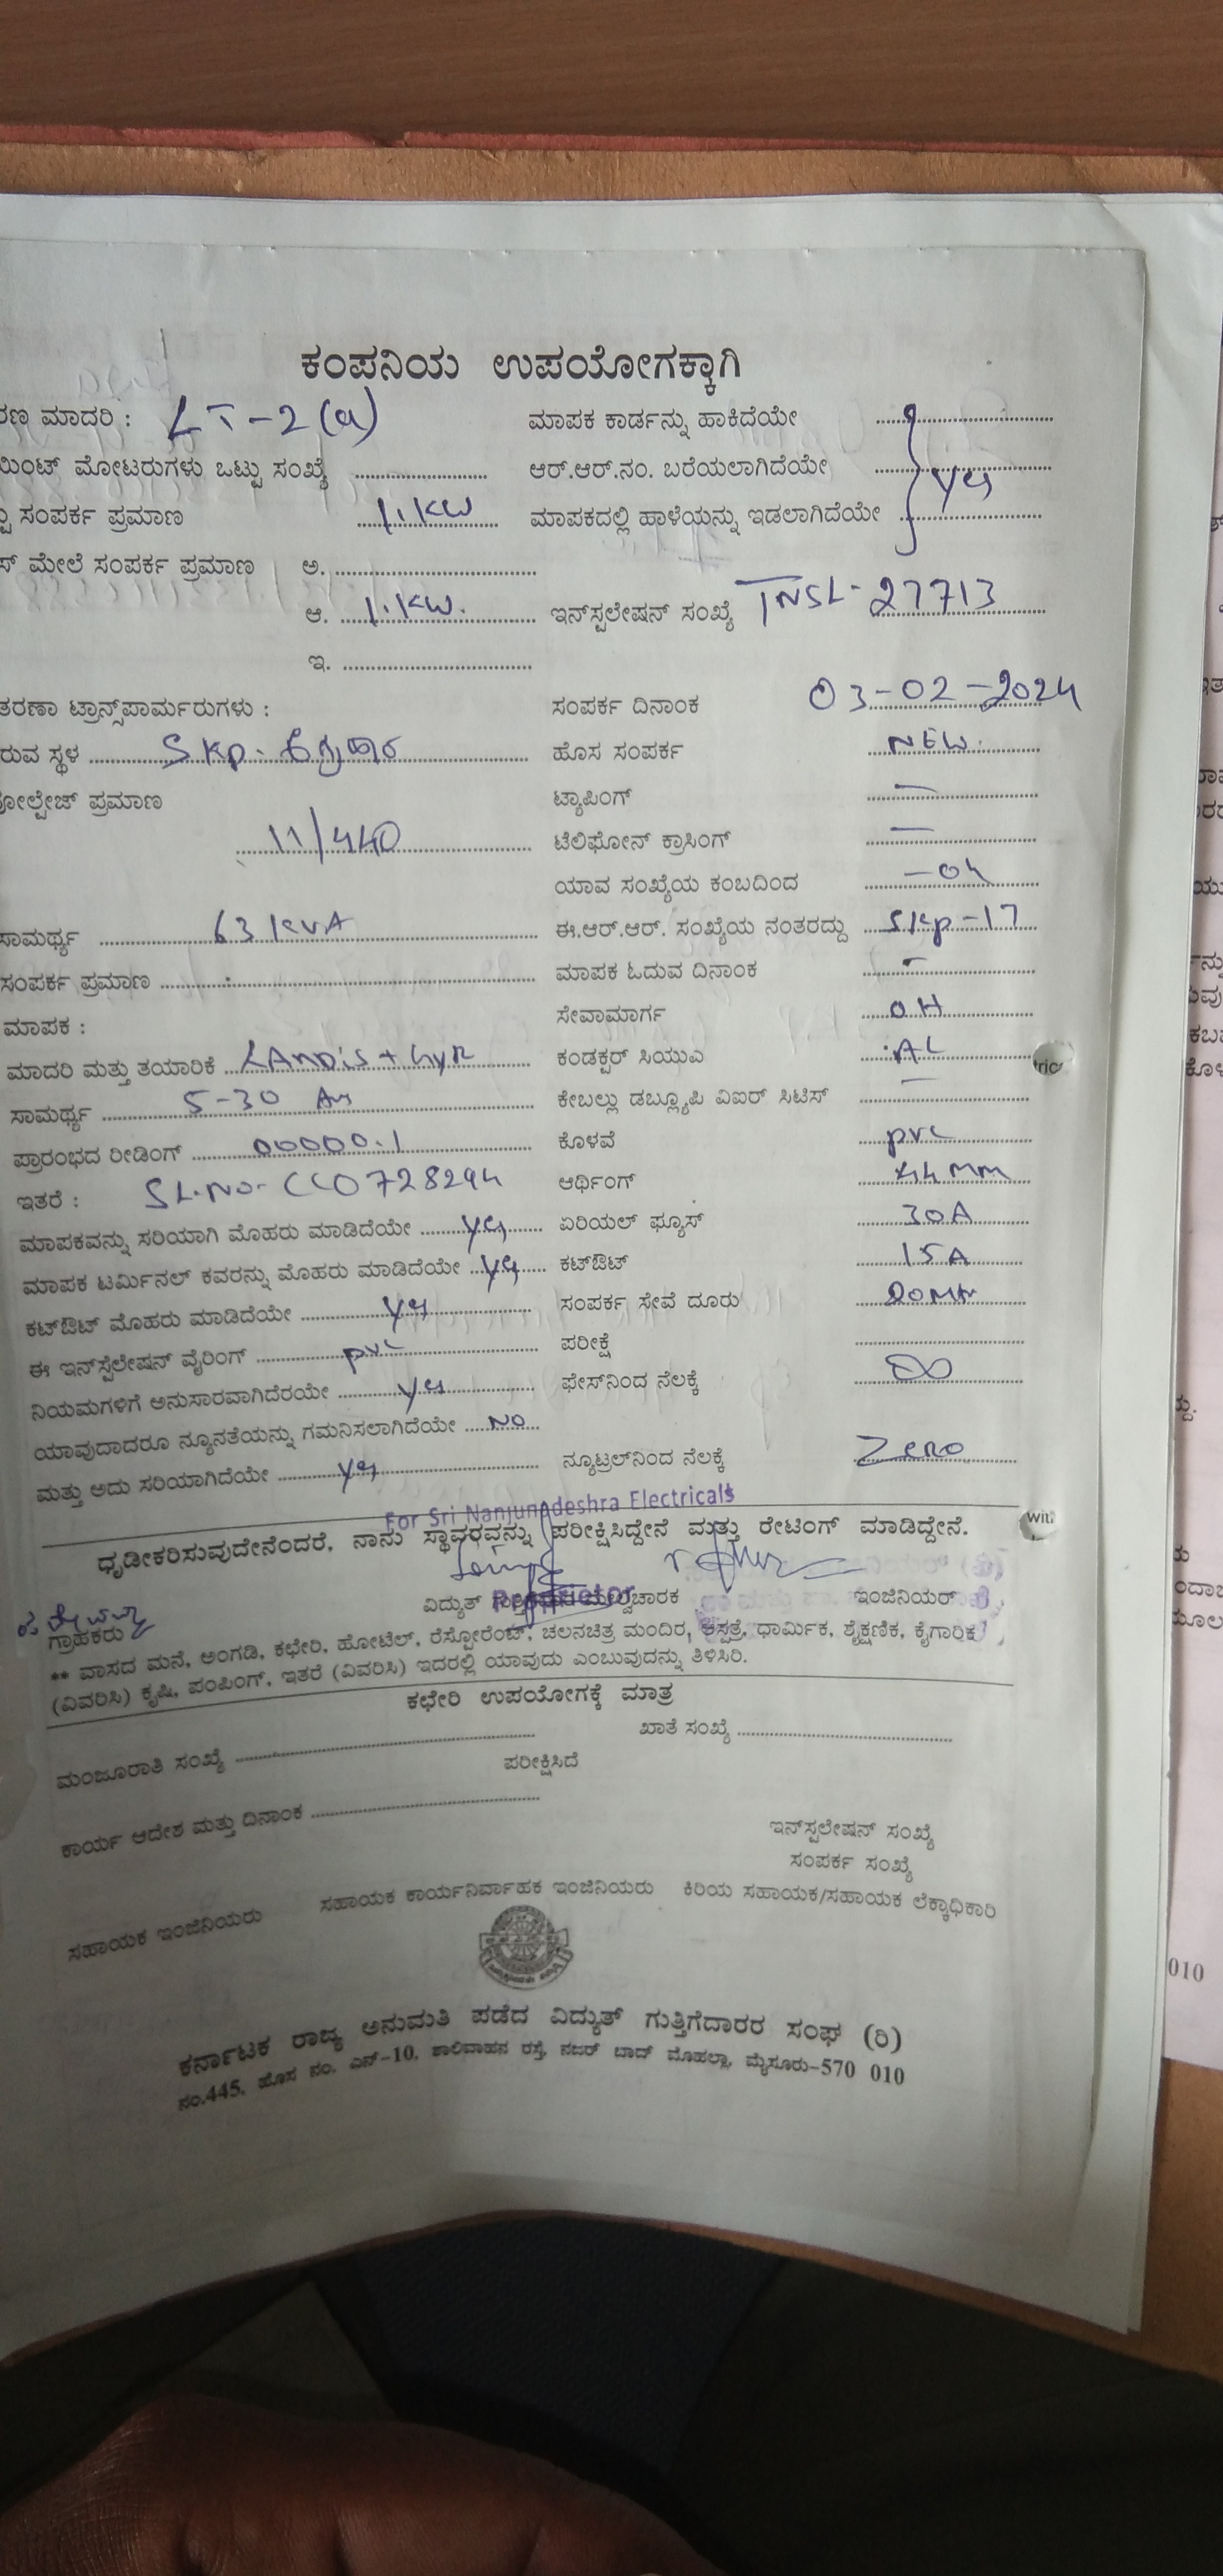 ಕಂಪನಿಯ ಉಪಯೋಗಕ್ಕಾಗಿ
ರಣ ಮಾದರಿ : LT-2(a) ಮಾಪಕ ಕಾರ್ಡನ್ನು ಹಾಕಿದೆಯೇ
ಯಿಂಟ್ ಮೋಟರುಗಳು ಒಟ್ಟು ಸಂಖ್ಯೆ ಆರ್.ಆರ್.ನಂ. ಬರೆಯಲಾಗಿದೆಯೇ yes
ಸಂಪರ್ಕ ಪ್ರಮಾಣ 1.KW ಮಾಪಕದಲ್ಲಿ ಹಾಳೆಯನ್ನು ಇಡಲಾಗಿದೆಯೇ
ಸ್ ಮೇಲೆ ಸಂಪರ್ಕ ಪ್ರಮಾಣ ಅ.
ಆ. 1.KW. ಇನ್‌ಸ್ಟಲೇಷನ್ ಸಂಖ್ಯೆ TNSL-27713
ಇ.
ತರಣಾ ಟ್ರಾನ್ಸ್‌ಪಾರ್ಮರುಗಳು : ಸಂಪರ್ಕ ದಿನಾಂಕ 03-02-2024
ರುವ ಸ್ಥಳ SKP. ಹೊಸ ಸಂಪರ್ಕ NEW.
ೋಲ್ಟೇಜ್ ಪ್ರಮಾಣ ಟ್ಯಾಪಿಂಗ್ —
11/440 ಟೆಲಿಫೋನ್ ಕ್ರಾಸಿಂಗ್ —
ಯಾವ ಸಂಖ್ಯೆಯ ಕಂಬದಿಂದ
ಸಾಮರ್ಥ್ಯ 63 KVA ಈ.ಆರ್.ಆರ್. ಸಂಖ್ಯೆಯ ನಂತರದ್ದು SKP-17
ಸಂಪರ್ಕ ಪ್ರಮಾಣ ಮಾಪಕ ಓದುವ ದಿನಾಂಕ -
ಮಾಪಕ : ಸೇವಾಮಾರ್ಗ OH
ಮಾದರಿ ಮತ್ತು ತಯಾರಿಕೆ LANDIS + GYR ಕಂಡಕ್ಟರ್ ಸಿಯುಎ AL
ಸಾಮರ್ಥ್ಯ 5-30 ಕೇಬಲ್ಲು ಡಬ್ಲ್ಯೂಪಿ ವಿಐರ್ ಸಿಟಿಸ್ —
ಪ್ರಾರಂಭದ ರೀಡಿಂಗ್ 00000.1 ಕೊಳವೆ pvc
ಇತರೆ : SL.NO- CCO728294 ಆರ್ಥಿಂಗ್ mm
ಮಾಪಕವನ್ನು ಸರಿಯಾಗಿ ಮೊಹರು ಮಾಡಿದೆಯೇ yes ಏರಿಯಲ್ ಫ್ಯೂಸ್ 30A
ಮಾಪಕ ಟರ್ಮಿನಲ್ ಕವರನ್ನು ಮೊಹರು ಮಾಡಿದೆಯೇ yes ಕಟ್‌ಔಟ್ 15A
ಕಟ್‌ಔಟ್ ಮೊಹರು ಮಾಡಿದೆಯೇ yes ಸಂಪರ್ಕ ಸೇವೆ ದೂರು 20 Mtr
ಈ ಇನ್‌ಸ್ಟೆಲೇಷನ್ ವೈರಿಂಗ್ pvc ಪರೀಕ್ಷೆ
ನಿಯಮಗಳಿಗೆ ಅನುಸಾರವಾಗಿದೆರಯೇ yes ಫೇಸ್‌ನಿಂದ ನೆಲಕ್ಕೆ ∞
ಯಾವುದಾದರೂ ನ್ಯೂನತೆಯನ್ನು ಗಮನಿಸಲಾಗಿದೆಯೇ NO
ಮತ್ತು ಅದು ಸರಿಯಾಗಿದೆಯೇ yes ನ್ಯೂಟ್ರಲ್‌ನಿಂದ ನೆಲಕ್ಕೆ Zero
For Sri Nanjundeshra Electricals
ಧೃಡೀಕರಿಸುವುದೇನೆಂದರೆ, ನಾನು ಸ್ಥಾವರವನ್ನು ಪರೀಕ್ಷಿಸಿದ್ದೇನೆ ಮತ್ತು ರೇಟಿಂಗ್ ಮಾಡಿದ್ದೇನೆ.
ವಿದ್ಯುತ್ ಮೇಲ್ವಿಚಾರಕ ಇಂಜಿನಿಯರ್
Proprietor
ಗ್ರಾಹಕರು
** ವಾಸದ ಮನೆ, ಅಂಗಡಿ, ಕಛೇರಿ, ಹೋಟೆಲ್, ರೆಸ್ಟೋರೆಂಟ್, ಚಲನಚಿತ್ರ ಮಂದಿರ, ಆಸ್ಪತ್ರೆ, ಧಾರ್ಮಿಕ, ಶೈಕ್ಷಣಿಕ, ಕೈಗಾರಿಕ
(ವಿವರಿಸಿ) ಕೃಷಿ, ಪಂಪಿಂಗ್, ಇತರೆ (ವಿವರಿಸಿ) ಇದರಲ್ಲಿ ಯಾವುದು ಎಂಬುವುದನ್ನು ತಿಳಿಸಿರಿ.
ಕಛೇರಿ ಉಪಯೋಗಕ್ಕೆ ಮಾತ್ರ
ಮಂಜೂರಾತಿ ಸಂಖ್ಯೆ ಖಾತೆ ಸಂಖ್ಯೆ
ಪರೀಕ್ಷಿಸಿದೆ
ಕಾರ್ಯ ಆದೇಶ ಮತ್ತು ದಿನಾಂಕ
ಇನ್‌ಸ್ಟಲೇಷನ್ ಸಂಖ್ಯೆ
ಸಂಪರ್ಕ ಸಂಖ್ಯೆ
ಸಹಾಯಕ ಇಂಜಿನಿಯರು ಸಹಾಯಕ ಕಾರ್ಯನಿರ್ವಾಹಕ ಇಂಜಿನಿಯರು ಕಿರಿಯ ಸಹಾಯಕ/ಸಹಾಯಕ ಲೆಕ್ಕಾಧಿಕಾರಿ
ಕರ್ನಾಟಕ ರಾಜ್ಯ ಅನುಮತಿ ಪಡೆದ ವಿದ್ಯುತ್ ಗುತ್ತಿಗೆದಾರರ ಸಂಘ (ರಿ)
ನಂ.445, ಹೊಸ ನಂ. ಎನ್-10, ಶಾಲಿವಾಹನ ರಸ್ತೆ, ನಜರ್ ಬಾದ್ ಮೊಹಲ್ಲಾ, ಮೈಸೂರು-570 010
010